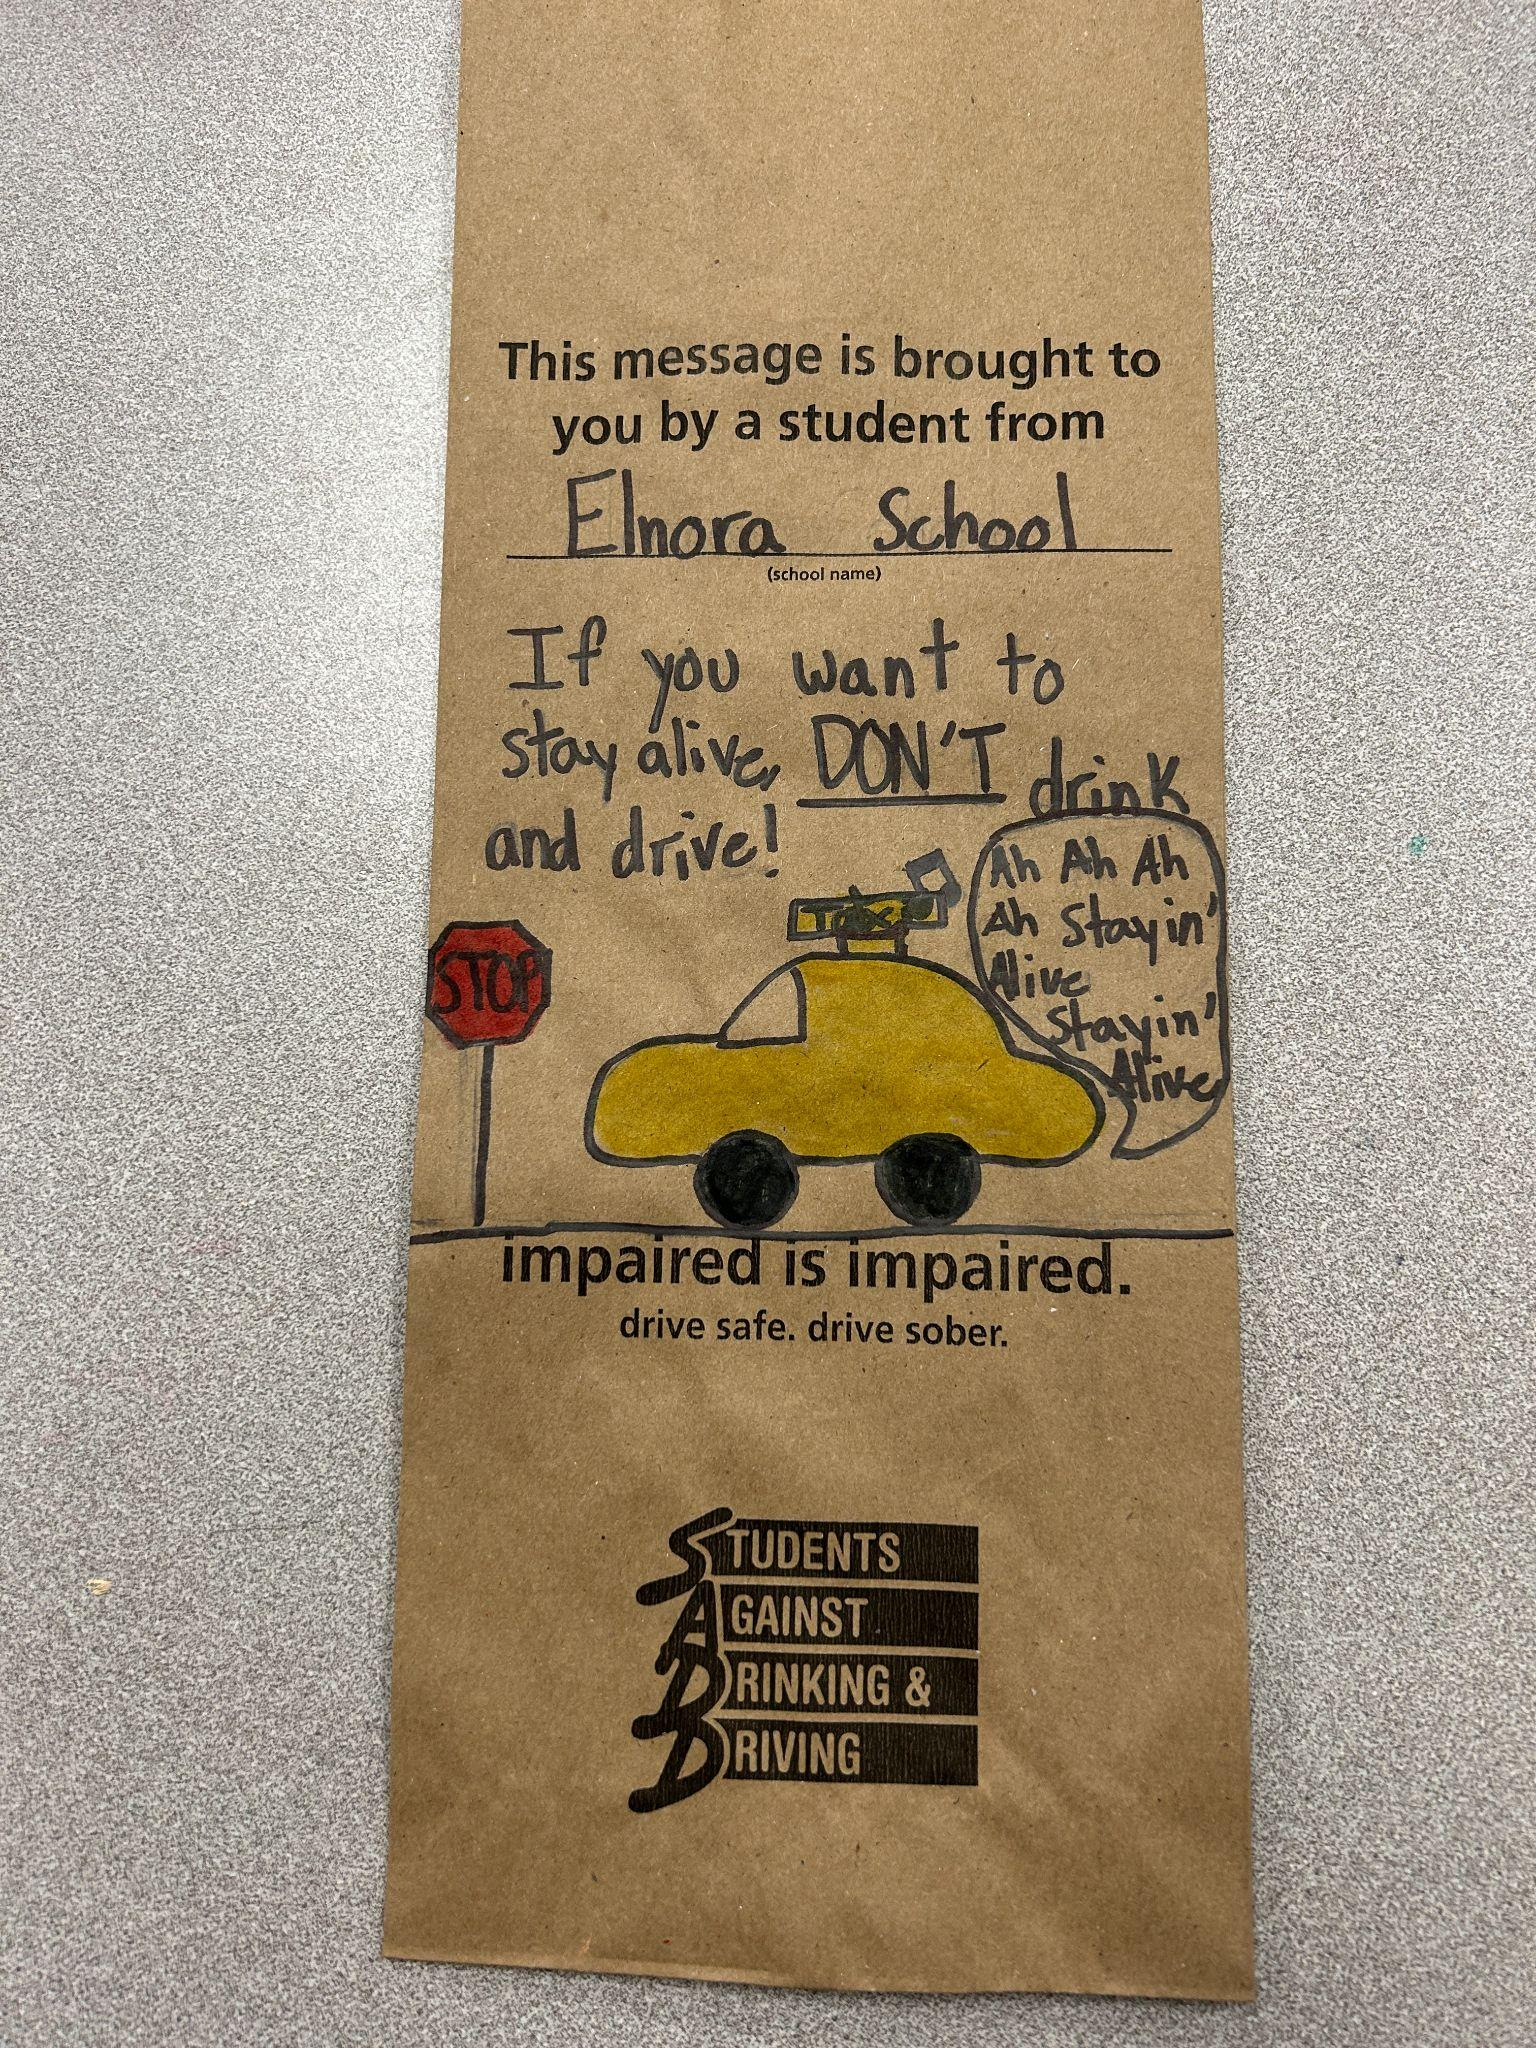 This message is brought to
you by a student from
Elnora School
(school name)
If you want to
stay alive, DON'T drink
and drive!
Ah Ah Ah
Ah Stayin'
Alive
Stayin'
Alive
STOP
impaired is impaired.
drive safe. drive sober.
STUDENTS
AGAINST
DRINKING &
DRIVING